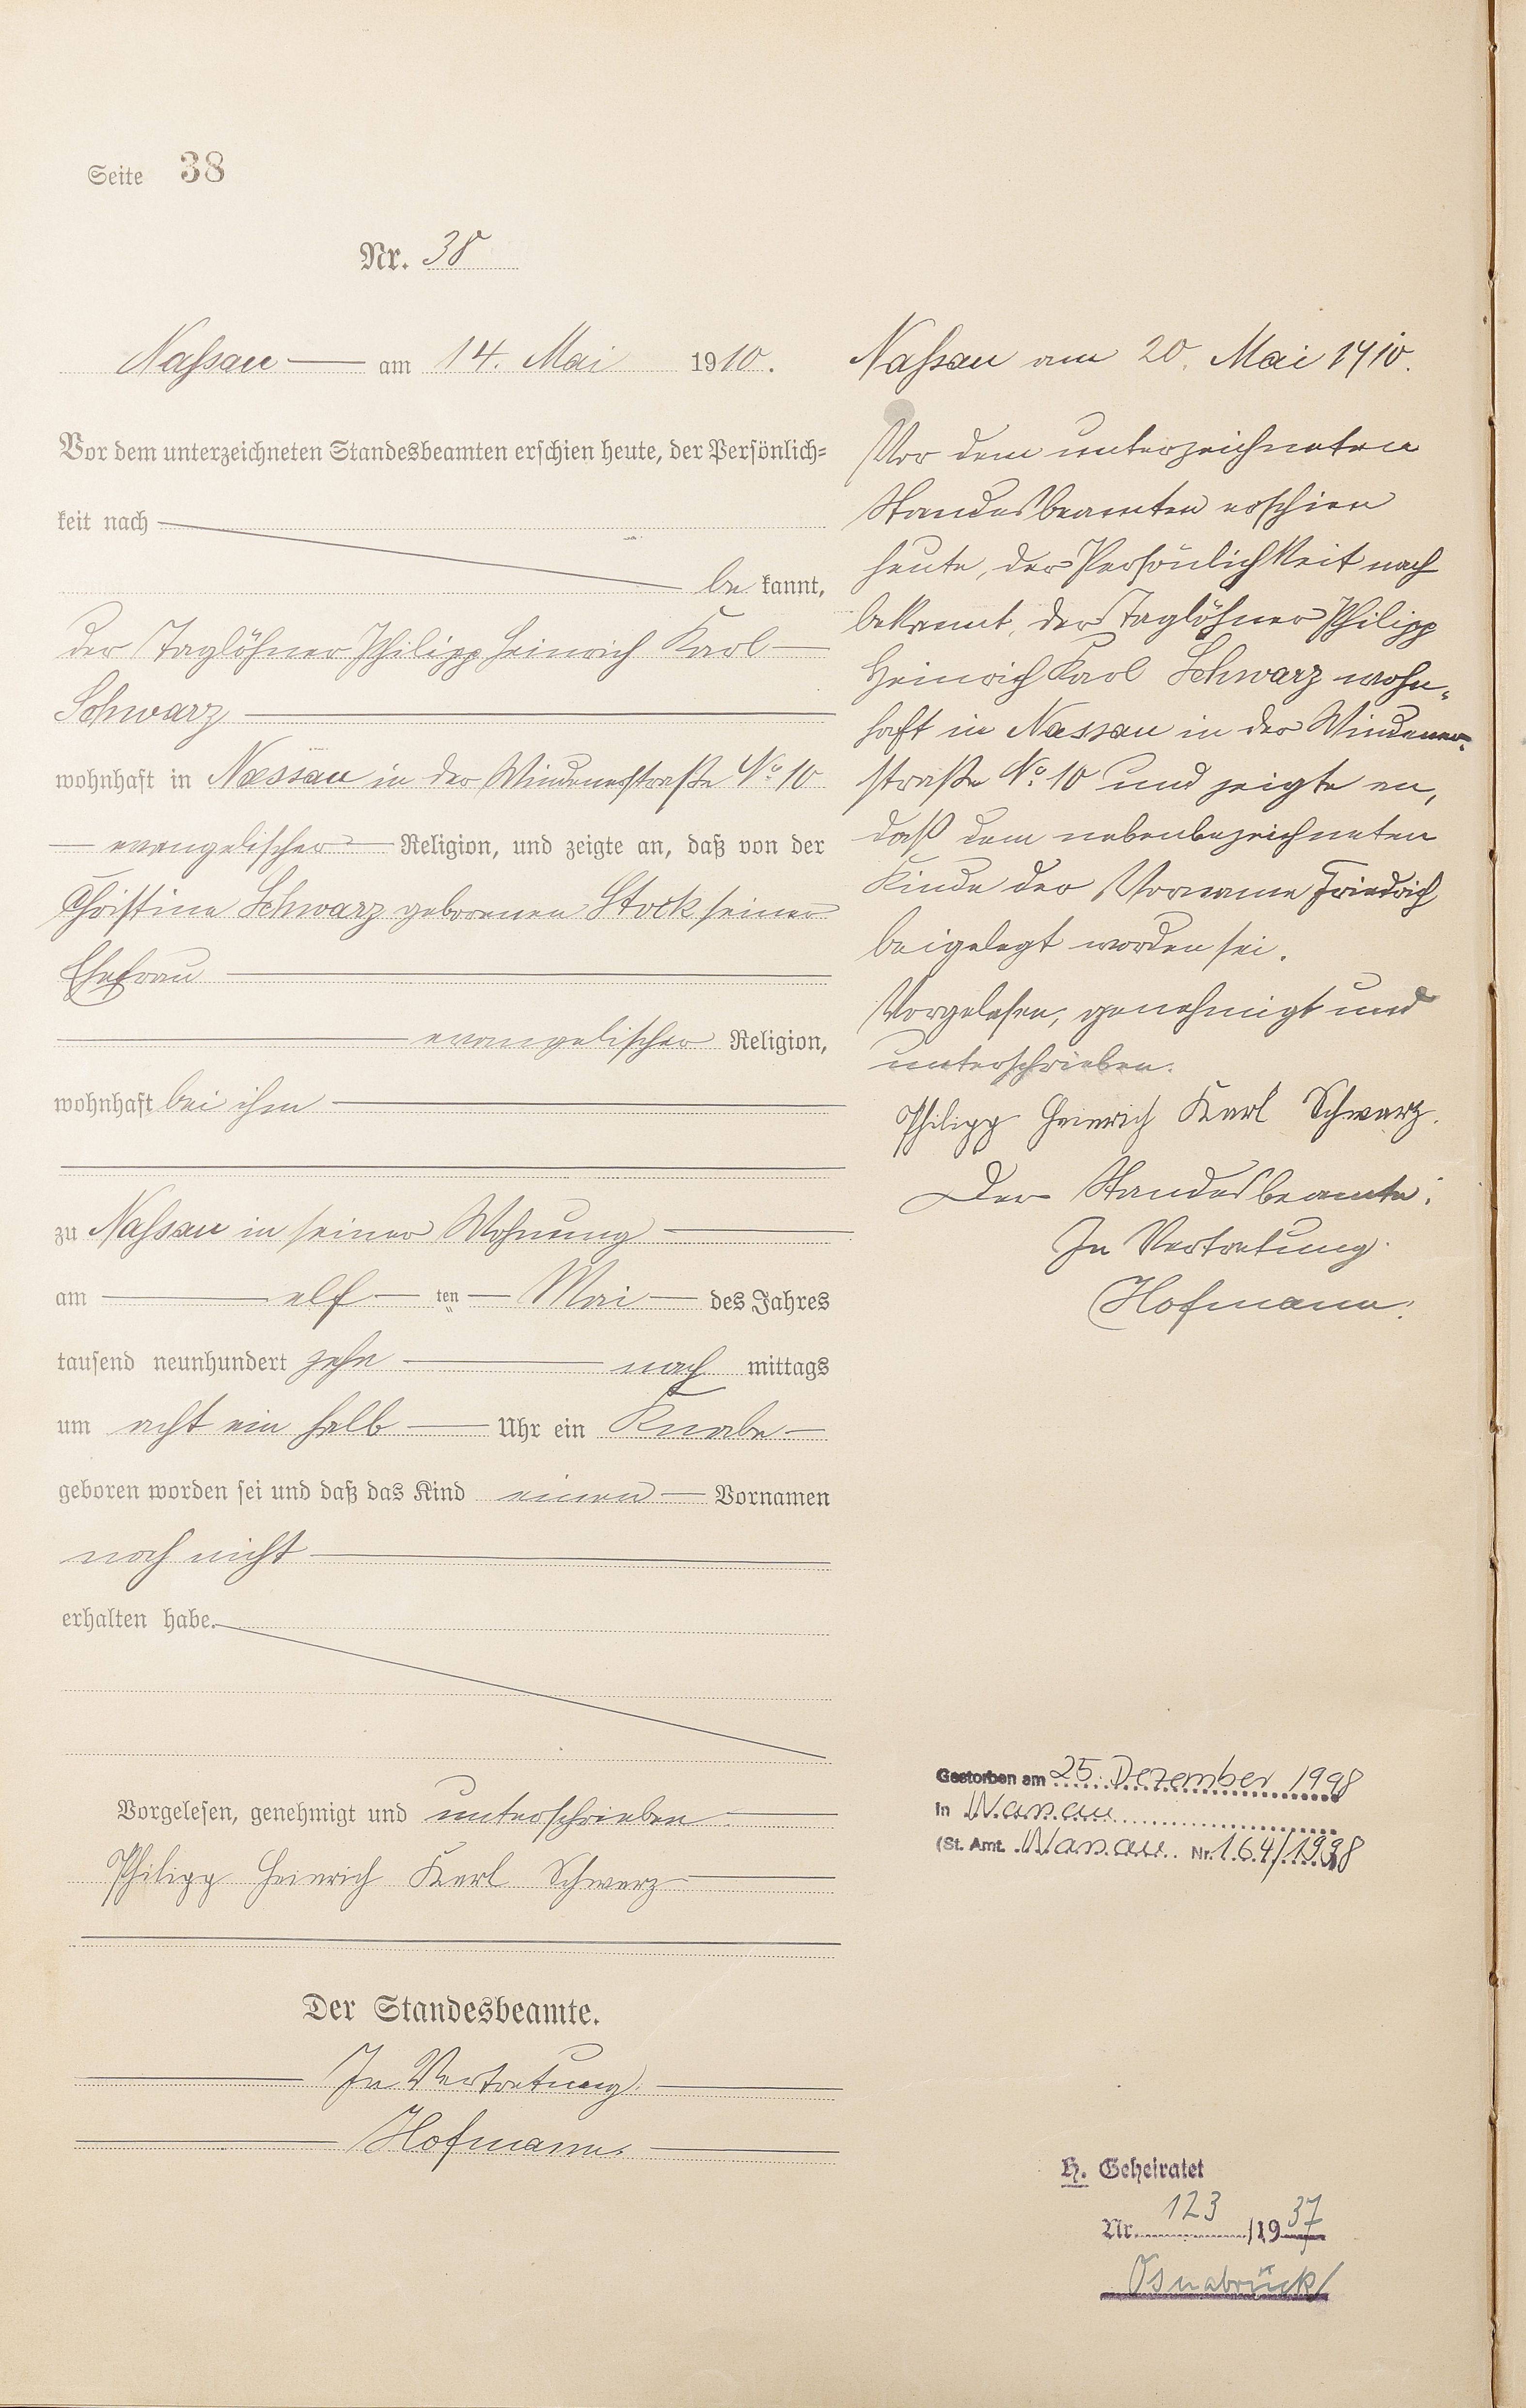 Seite 38
Nr. 38
Nassau am 14. Mai 1910.
Vor dem unterzeichneten Standesbeamten erschien heute, der Persönlich=
keit nach
be kannt,
der Taglöhner Philipp Heinrich Karl
Schwarz
wohnhaft in Nassau in der Windenerstraße No 10
evangelischer Religion, und zeigte an, daß von der
Christine Schwarz geborenen Stock seiner
Ehefrau
evangelischer Religion,
wohnhaft bei ihm
zu Nassau in seiner Wohnung
am elf ten Mai des Jahres
tausend neunhundert zehn nach mittags
um acht ein halb Uhr ein Knabe
geboren worden sei und daß das Kind einen Vornamen
noch nicht
erhalten habe.
Vorgelesen, genehmigt und unterschrieben
Philipp Heinrich Karl Schwarz
Der Standesbeamte.
In Vertretung:
Hofmann.
Nassau am 20. Mai 1910.
Vor dem unterzeichneten
Standesbeamten erschien
heute, der Persönlichkeit nach
bekannt, der Taglöhner Philipp
Heinrich Karl Schwarz wohn=
haft in Nassau in der Windener=
straße No 10 und zeigte an,
daß dem nebenbezeichneten
Kinde der Vorname Friedrich
beigelegt worden sei.
Vorgelesen, genehmigt und
unterschrieben.
Philipp Heinrich Karl Schwarz.
Der Standesbeamte:
In Vertretung:
Hofmann.
Gestorben am 25. Dezember 1998
in Nassau
(St. Amt. Nassau Nr. 164/1998
H. Geheiratet
Nr. 123 /1937
Osnabrück/